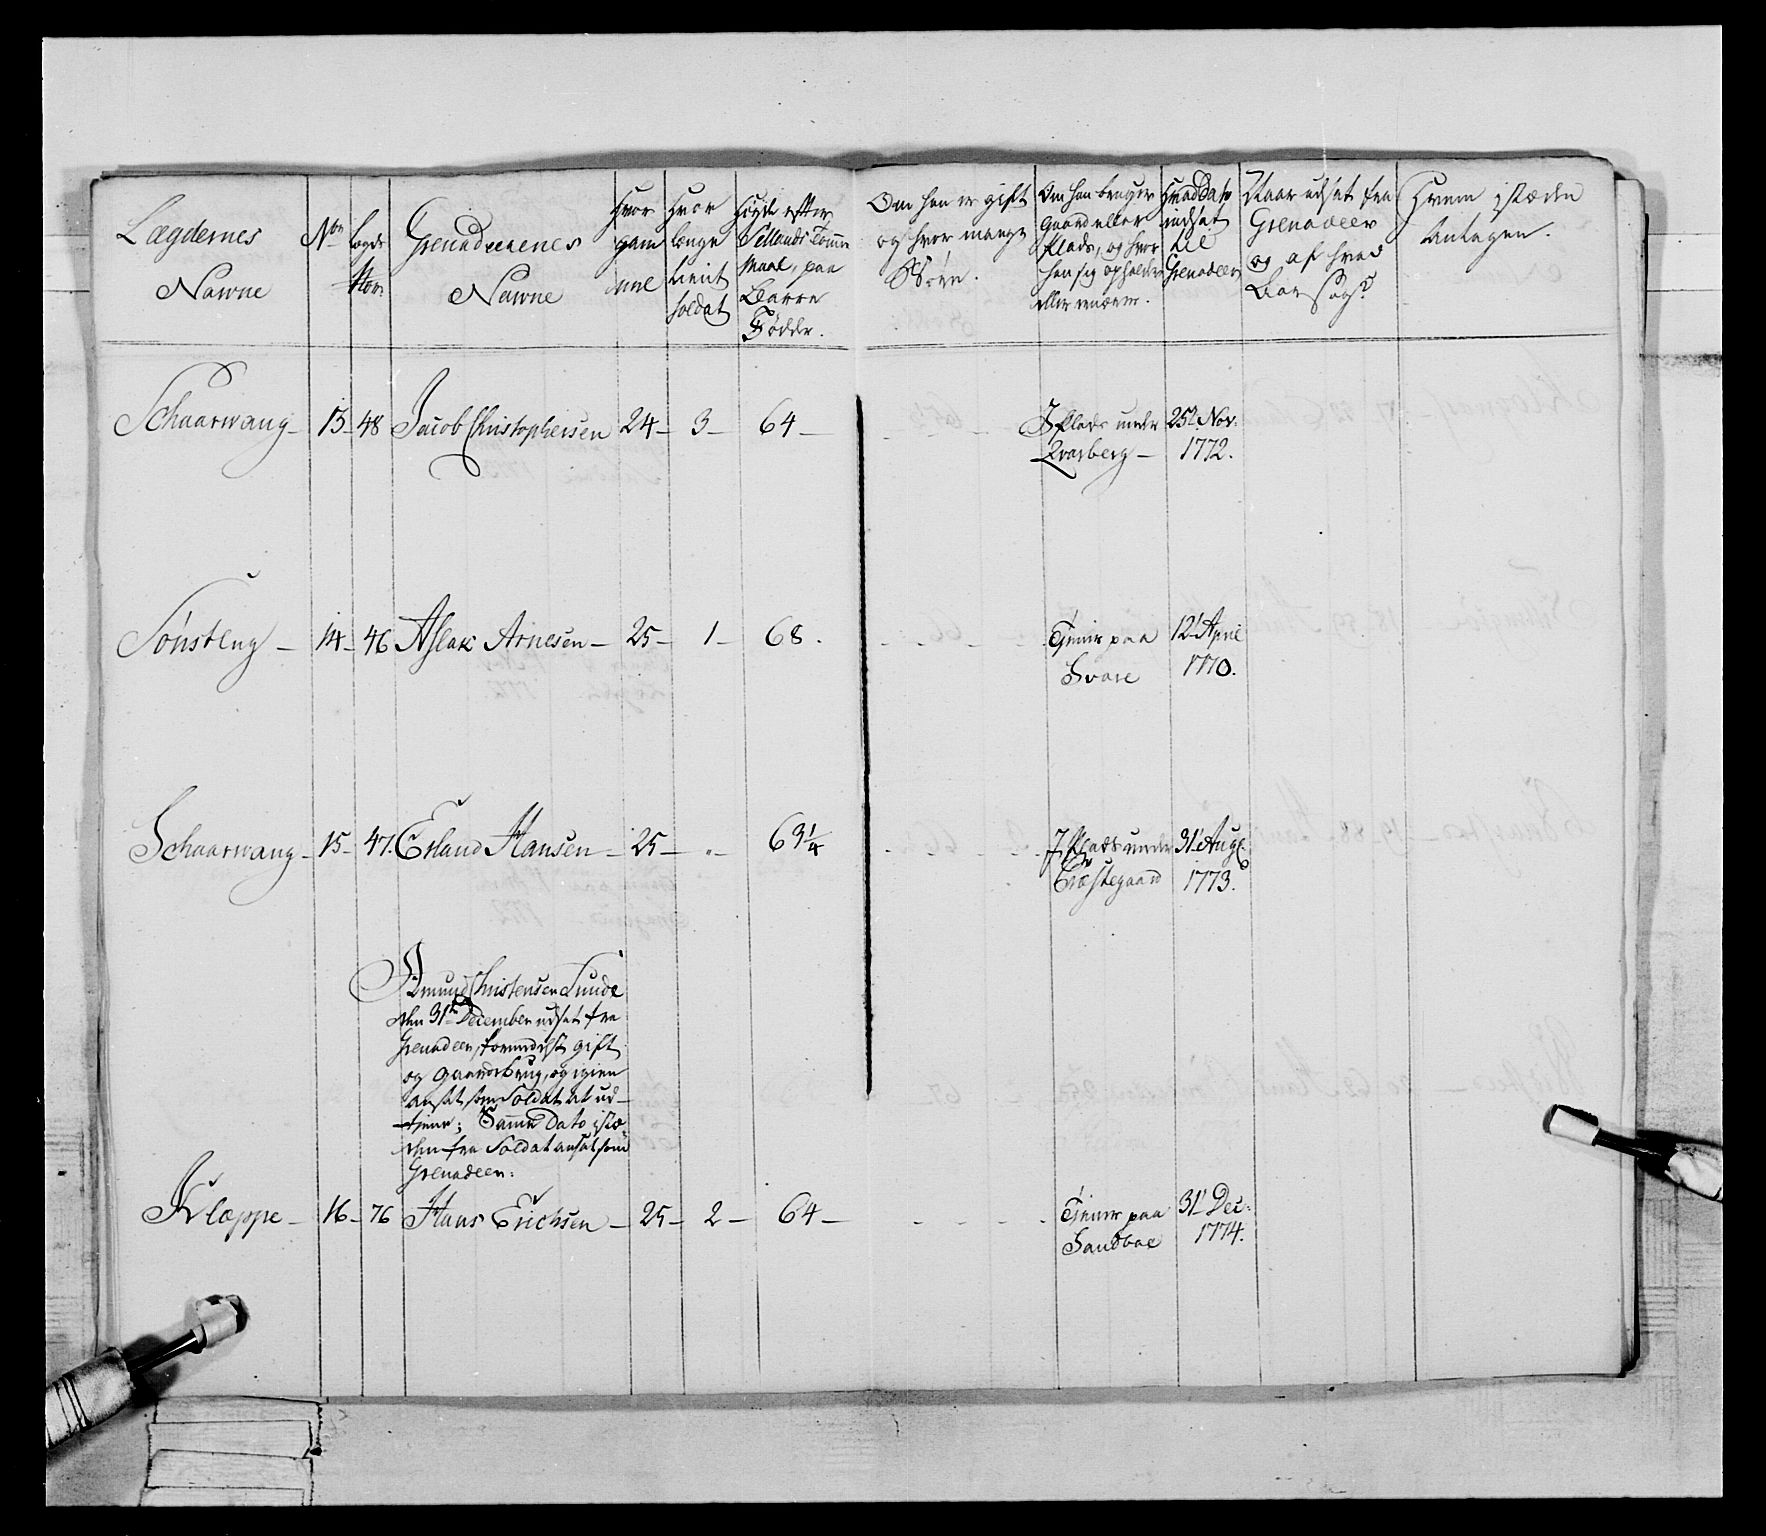 Lægdernes Nawne
No
Lægds Nor:
Grenadeerenes Nawne
Hvor gam mel
Hvor længe tient Soldat
Høyde efter Sellands Tomme Maal, paa Barre Fødder.
Om han er gift og hvor mange Børn.
Om han bruger Gaard eller Plads, og hvor han sig opholder eller
Hvad Dato udsat til Grenadeer
Naar udsat fra Grenadeer og af hvad Aarsag?
Hvem i stæden Antagen.
Schaarwang – 13 – 48 Jacob Christophersen 24 – 3 – 64 – J Plads under 25de Nov:
Qvarberg – 1772.
Sønsteng – 14 – 46 Aslak Arnesen – 25 – 1 – 68. Tjener paa 12t April
Svare 1770.
Schaarwang – 15 – 47. Erland Hansen – 25 – „ – 63 1/4 J Plads under 31t Aug:
Præstegaard 1773.
Amund Christensen Lunde
den 31te December udsat fra
Grenadeer, formedelst gift
og Gaardsbrug, og igien
ansat som Soldat at ud-
tiene; Samme Dato istæ-
den fra Soldat ansat som
Grenadeer:
Kloppe – 16 – 76 Hans Erichsen – 25 – 2 – 64 – Tjener paa 31t Dec:
Sandboe 1774.